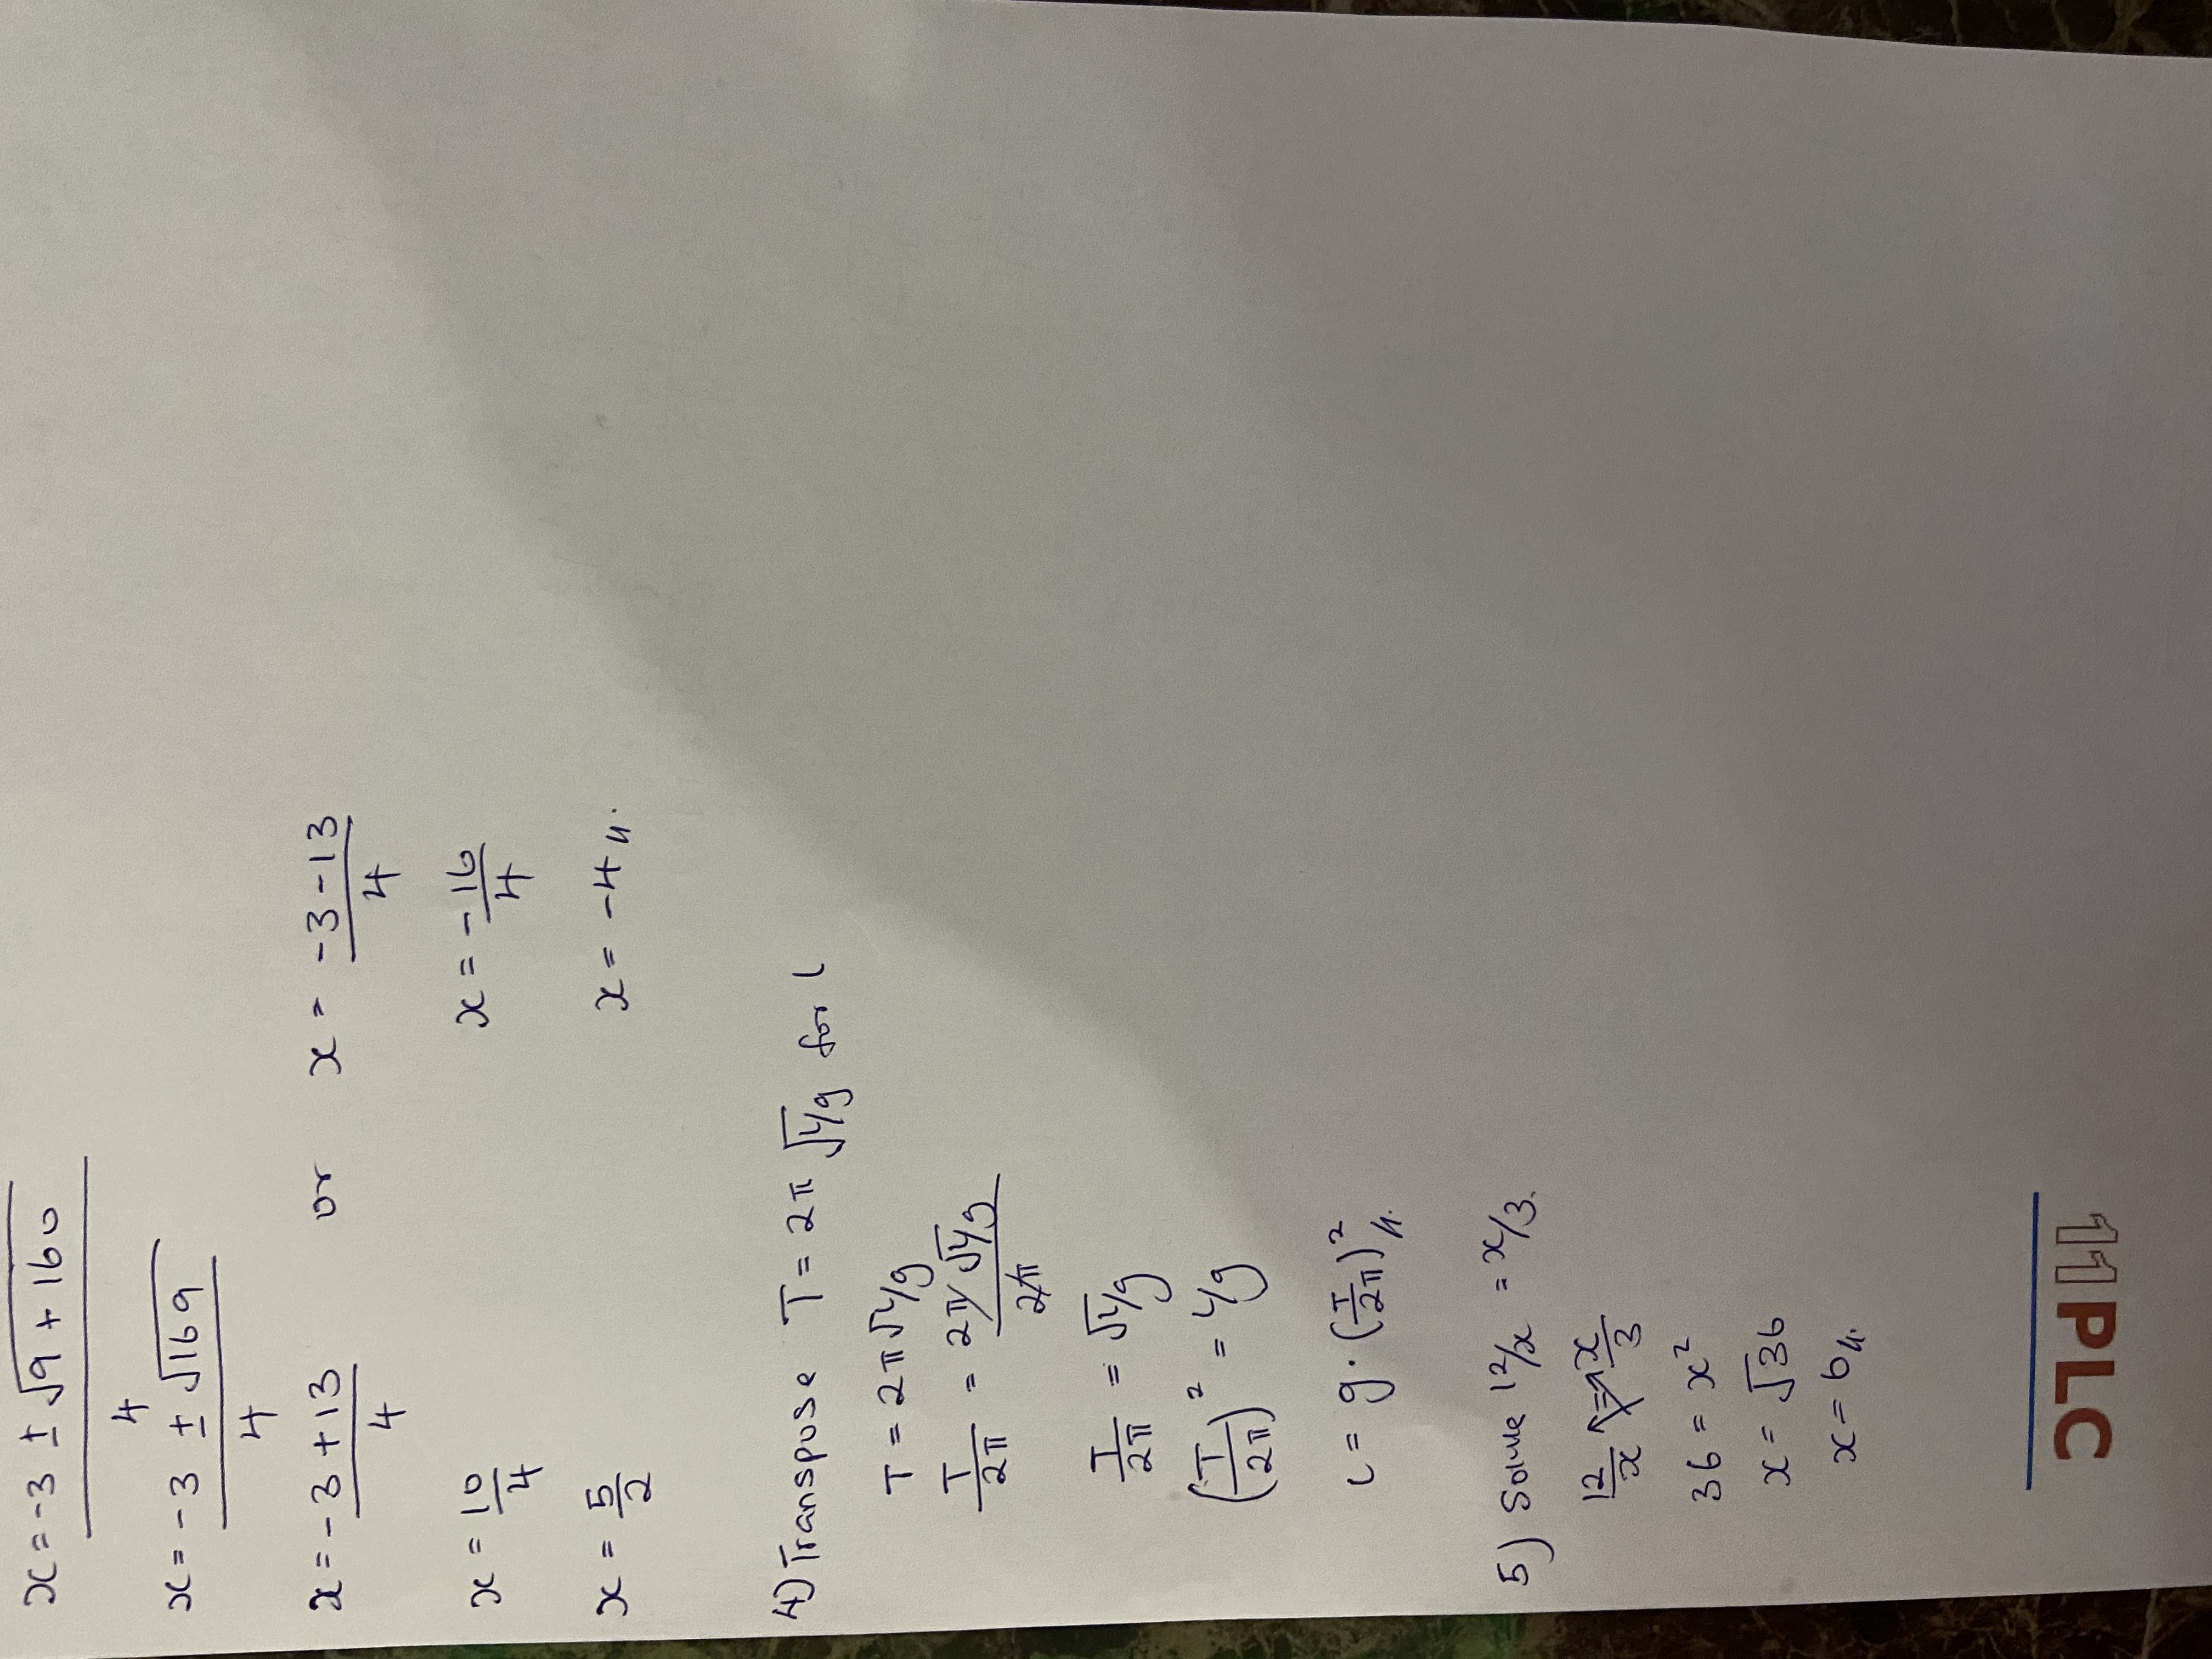 x = -3 ± √9 + 160
4
x = -3 ± √169
4
x = -3 + 13 or x = -3 - 13
4 4
x = 10 x = -16
4 4
x = 5 x = -4 //.
2
4) Transpose T = 2π √l/g for l
T = 2π √l/g
T = 2π √l/g
2π 2π
T = √l/g
2π
(T/2π)² = l/g
l = g · (T/2π)² //.
5) Solve 12/x = x/3.
12 = x
x 3
36 = x²
x = √36
x = 6 //.
11PLC